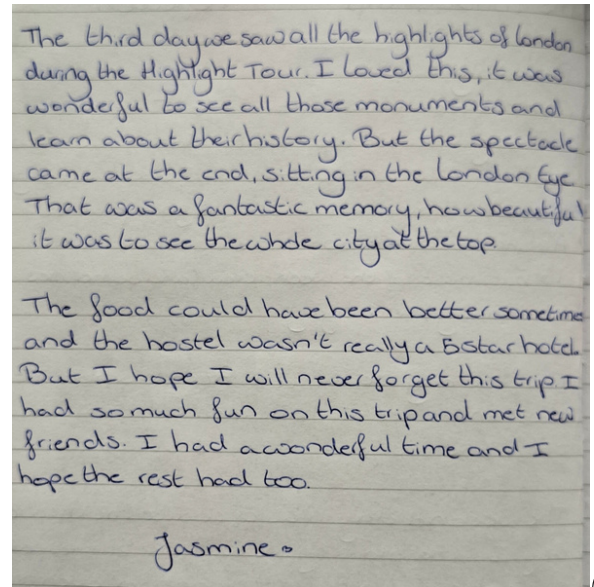 The third day we saw all the highlights of London
during the Highlight Tour. I loved this, it was
wonderful to see all those monuments and
learn about their history. But the spectacle
came at the end, sitting in the London Eye
That was a fantastic memory, how beautiful
it was to see the whole city at the top.
The food could have been better sometime
and the hostel wasn't really a 5 star hotel.
But I hope I will never forget this trip I
had so much fun on this trip and met new
friends. I had a wonderful time and I
hope the rest had too.
Jasmine.